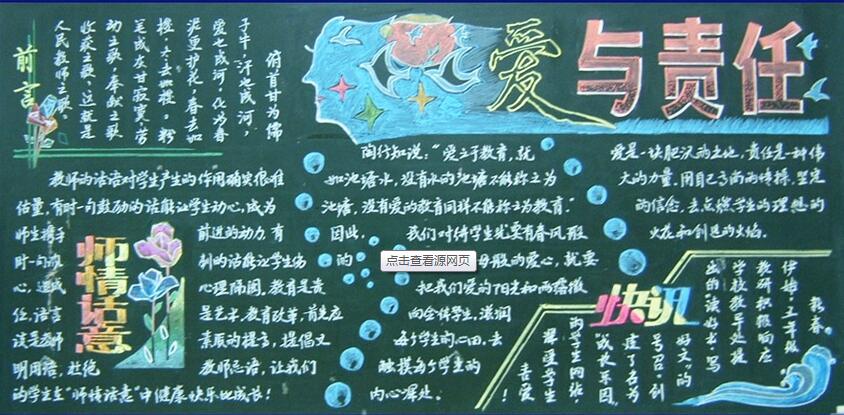 爱与责任
前言
俯首甘为儒
子牛,汗也成河,
爱也成河,化为春
泥更护花,春去如
动之歌,奉献之歌
收获之歌,这就是
人民教师之歌。
教师的话语对学生产生的作用确实很难
估量,有时一句鼓励的话能让学生动心,成为
师生携手
前进的动力,有
时一句
刺的话能让学生伤
心,造成
心理阴阂。教育是责
任,语言
是艺术,教育改革,首先应
该是教师
素质的提高,提倡文
明用语,杜绝
教师忌语,让我们
的学生在“师情话意”中健康快乐地成长!
师情话意
陶行知说:“爱之于教育,就
如池塘水,没有水的池塘不能称之为
池塘,没有爱的教育同样不能称之为教育。”
因此,我们对待学生就要有春风般
的
母般的爱心,就要
把我们爱的阳光和雨露微
向全体学生,滋润
每个学生的心田,去
触摸每个学生的
内心深处。
点击查看源网页
爱是一块肥沃的土地,责任是一种伟
大的力量,用自己高尚的情操,坚定
的信念,去点燃学生的理想的
火花和创造的火焰。
快讯
伊始,三年级
教研积极响应
学校教导处提
出的“读好书,写
好文”的
号召,创
建了名为
“成长乐园”
的学生网站,